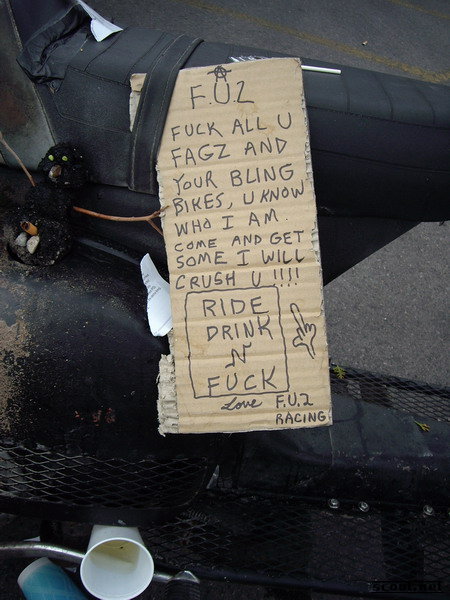 F.U2
FUCK ALL U
FAGZ AND
YOUR BLING
BIKES, U KNOW
WHO I AM.
COME AND GET
SOME I WILL
CRUSH U !!!!
RIDE
DRINK
N
FUCK
Love F.U.2
RACING